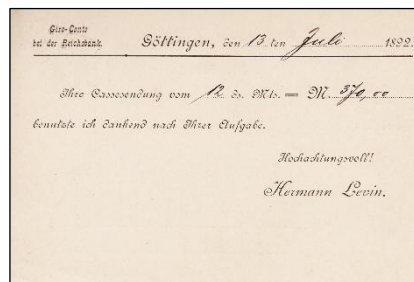 Giro-Conto
bei der Reichsbank.
Göttingen, den 13 ten Juli 1892.
Ihre Cassesendung vom 12 ds. Mts. = M. 370,00
benutzte ich dankend nach Ihrer Aufgabe.
Hochachtungsvoll!
Hermann Levin.